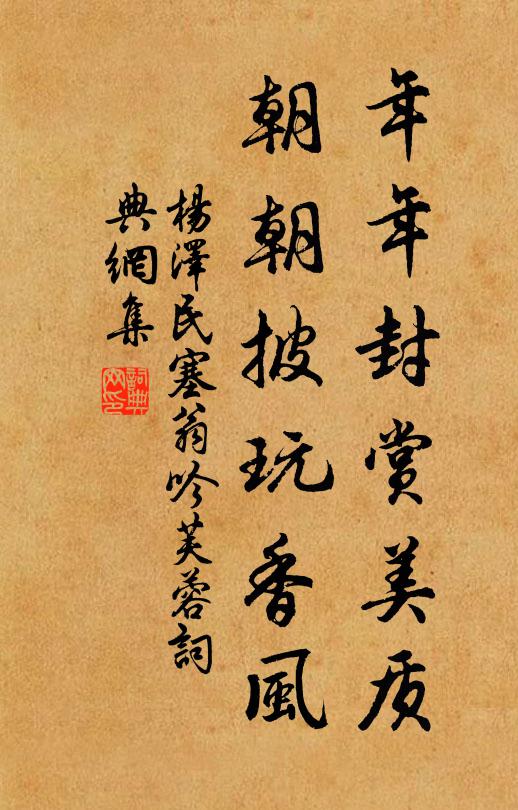 年年封賞美质
朝朝披玩香風
楊澤民塞翁吟芙蓉詞
典網集
詞典